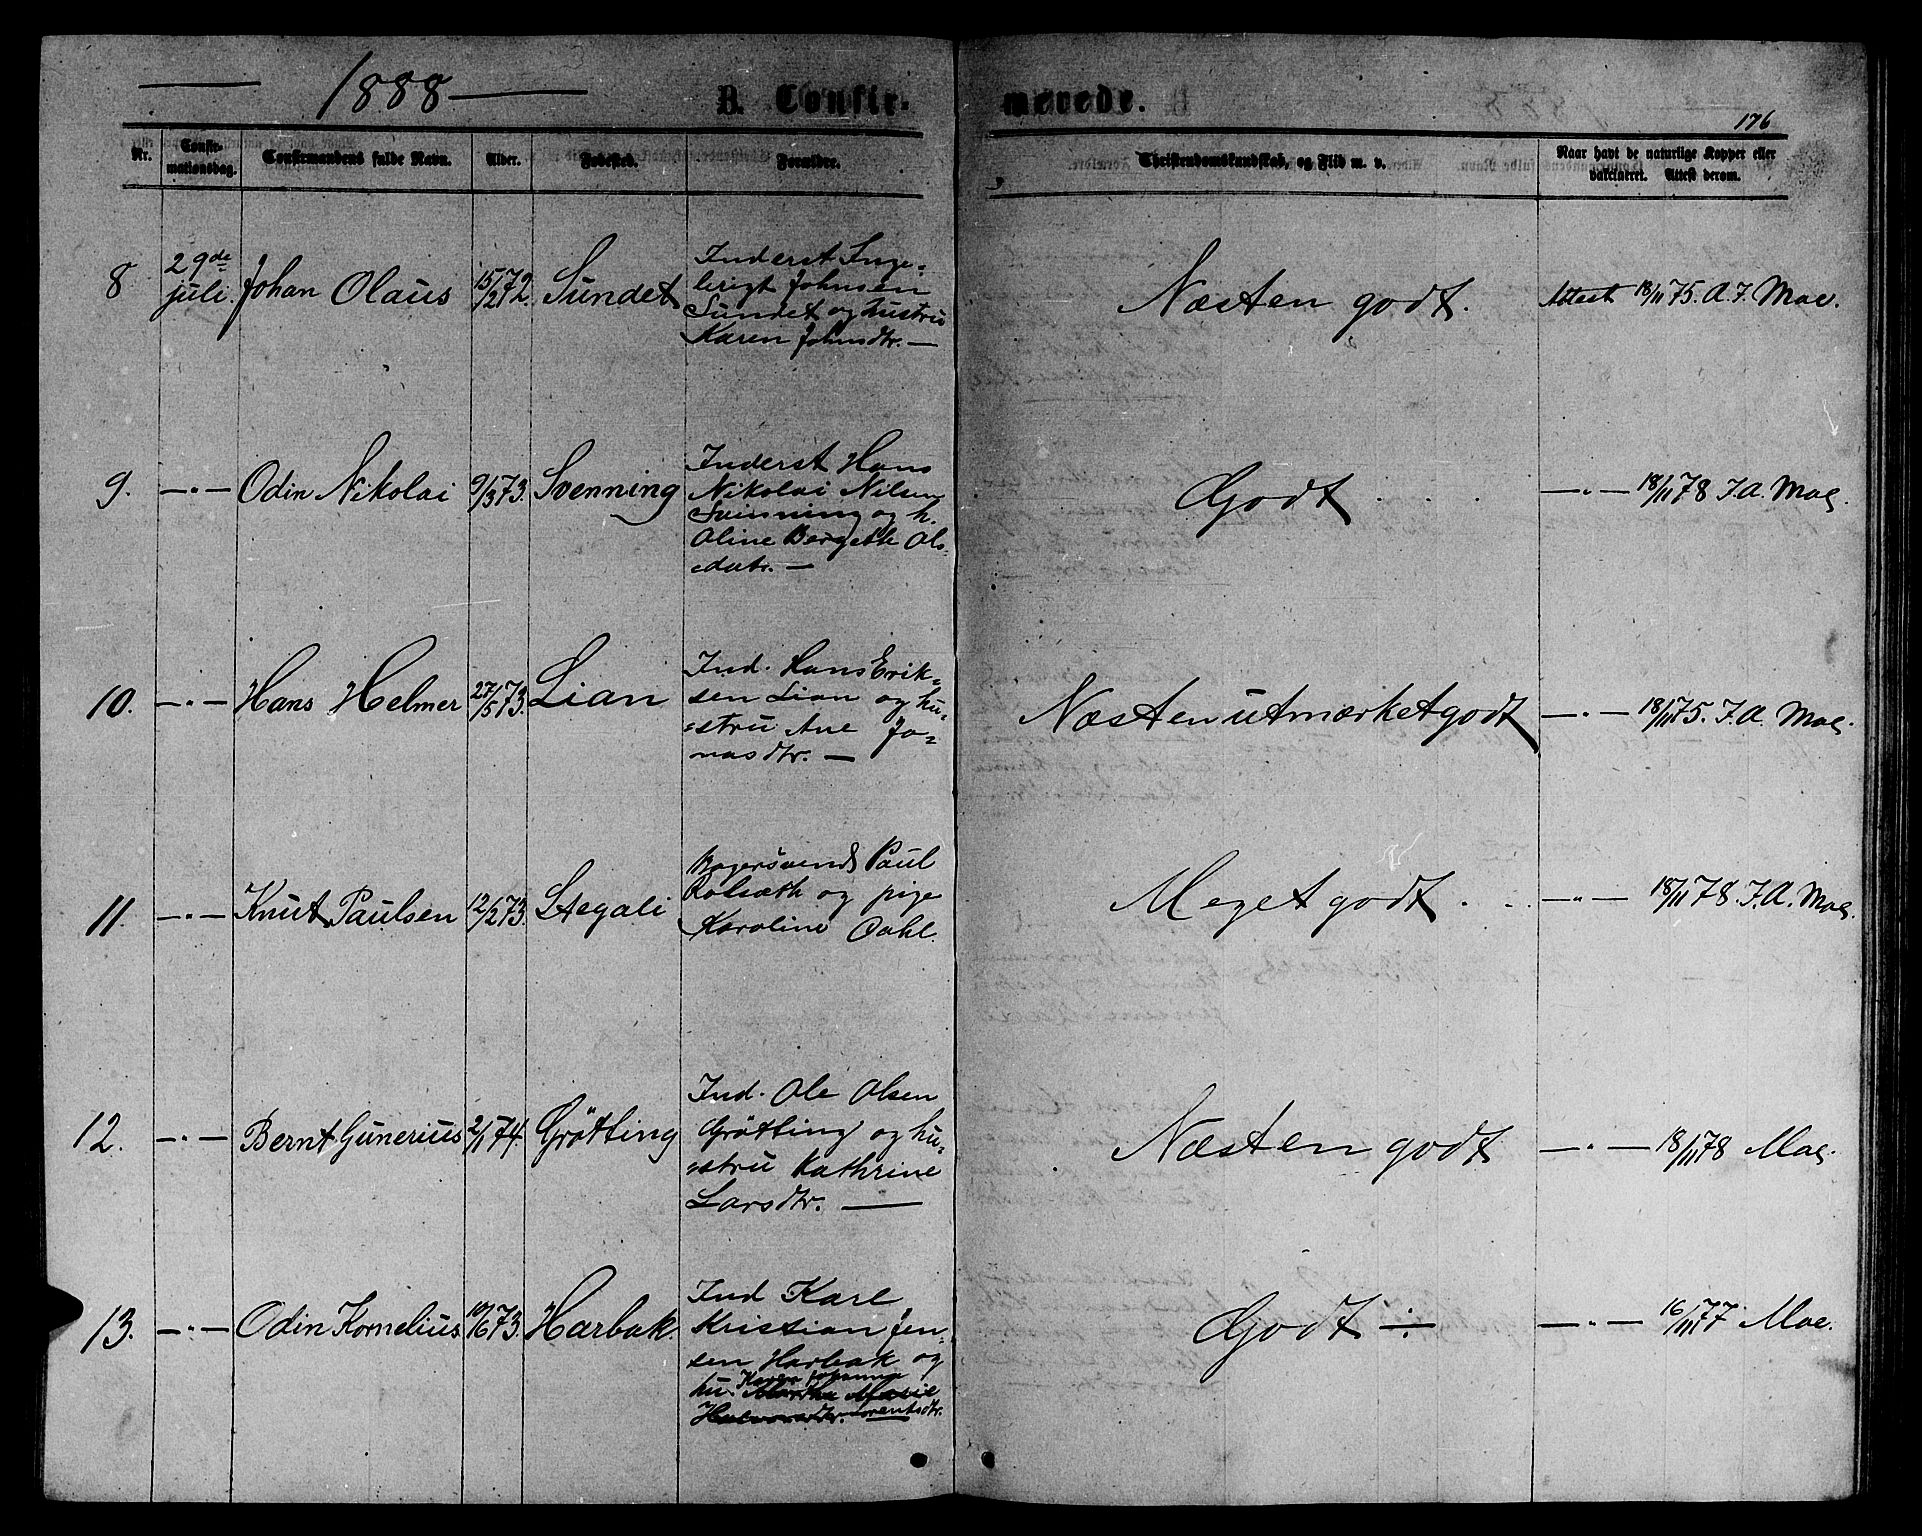 1888
B. Confirmerede.
176
Nr.
Confirmationsdag.
Confirmandens fulde Navn.
Alder.
Fødested.
Forældre.
Christendomskundskab, og Flid m. v.
Naar havt de naturlige Kopper eller
vakcineret. Attest derom.
8 29de juli. Johan Olaus 15/12 72. Sundet
Inderst Inge-
brigt Johnsen
Sundet og hustru
Karen Johnsdtr. —
Næsten godt. Attest 18/11 75. A. F. Moe.
9. —"— Odin Nikolai 9/3 73. Svenning
Inderst Hans
Nikolai Nilsen
Svinning og h.
Oline Bergeth Ols-
datr. —
Godt —"— 18/11 78 F. A. Moe.
10. —"— Hans Helmer 27/5 73. Lian
Ind. Hans Erik-
sen Lian og hu-
stru Ane Jo-
nasdtr. —
Næsten utmærket godt —"— 18/11 75. F. A. Moe.
11. —"— Knut Paulsen 12/2 73. Stegali
Bagersvend Paul
Rolseth og pige
Karoline Dahl.
Meget godt —"— 18/11 78. F. A. Moe.
12. —"— Bernt Gunerius 2/1 74. Grøtting
Ind. Ole Olsen
Grøtting og hu-
stru Kathrine
Larsdtr. —
Næsten godt —"— 18/11 78 Moe.
13. —"— Odin Kornelius 10/6 73. Harbak.
Ind Karl
Kristian Jen-
sen Harbak og
hu. Karen Johanna
Martha Marie
Halvorsdtr. Lorentsdtr.
Godt ÷ —"— 16/11 77 Moe.